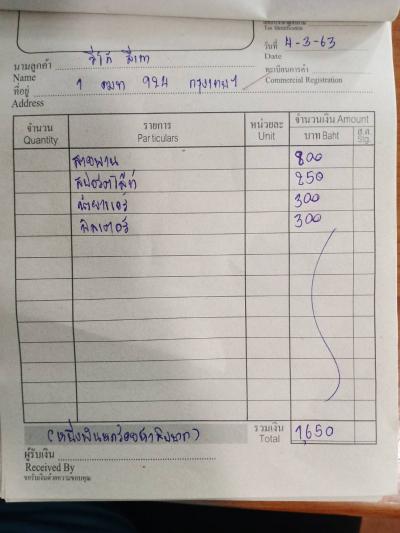 Tax Identification
วันที่ 4-3-63
Date
นามลูกค้า
Name
ทะเบียนการค้า
Commercial Registration
ที่อยู่ 1 ฒฆ 924 กรุงเทพฯ
Address
จำนวน
Quantity
รายการ
Particulars
หน่วยละ
Unit
จำนวนเงิน Amount
บาท Baht
ส.ต.
Stg.
สายพาน 800
สปอตไล้ท์ 250
300
ฟิลเตอร์ 300
(หนึ่งพันหกร้อยห้าสิบบาท)
รวมเงิน
Total
1,650
ผู้รับเงิน
Received By
ขอรับเงินด้วยความขอบคุณ